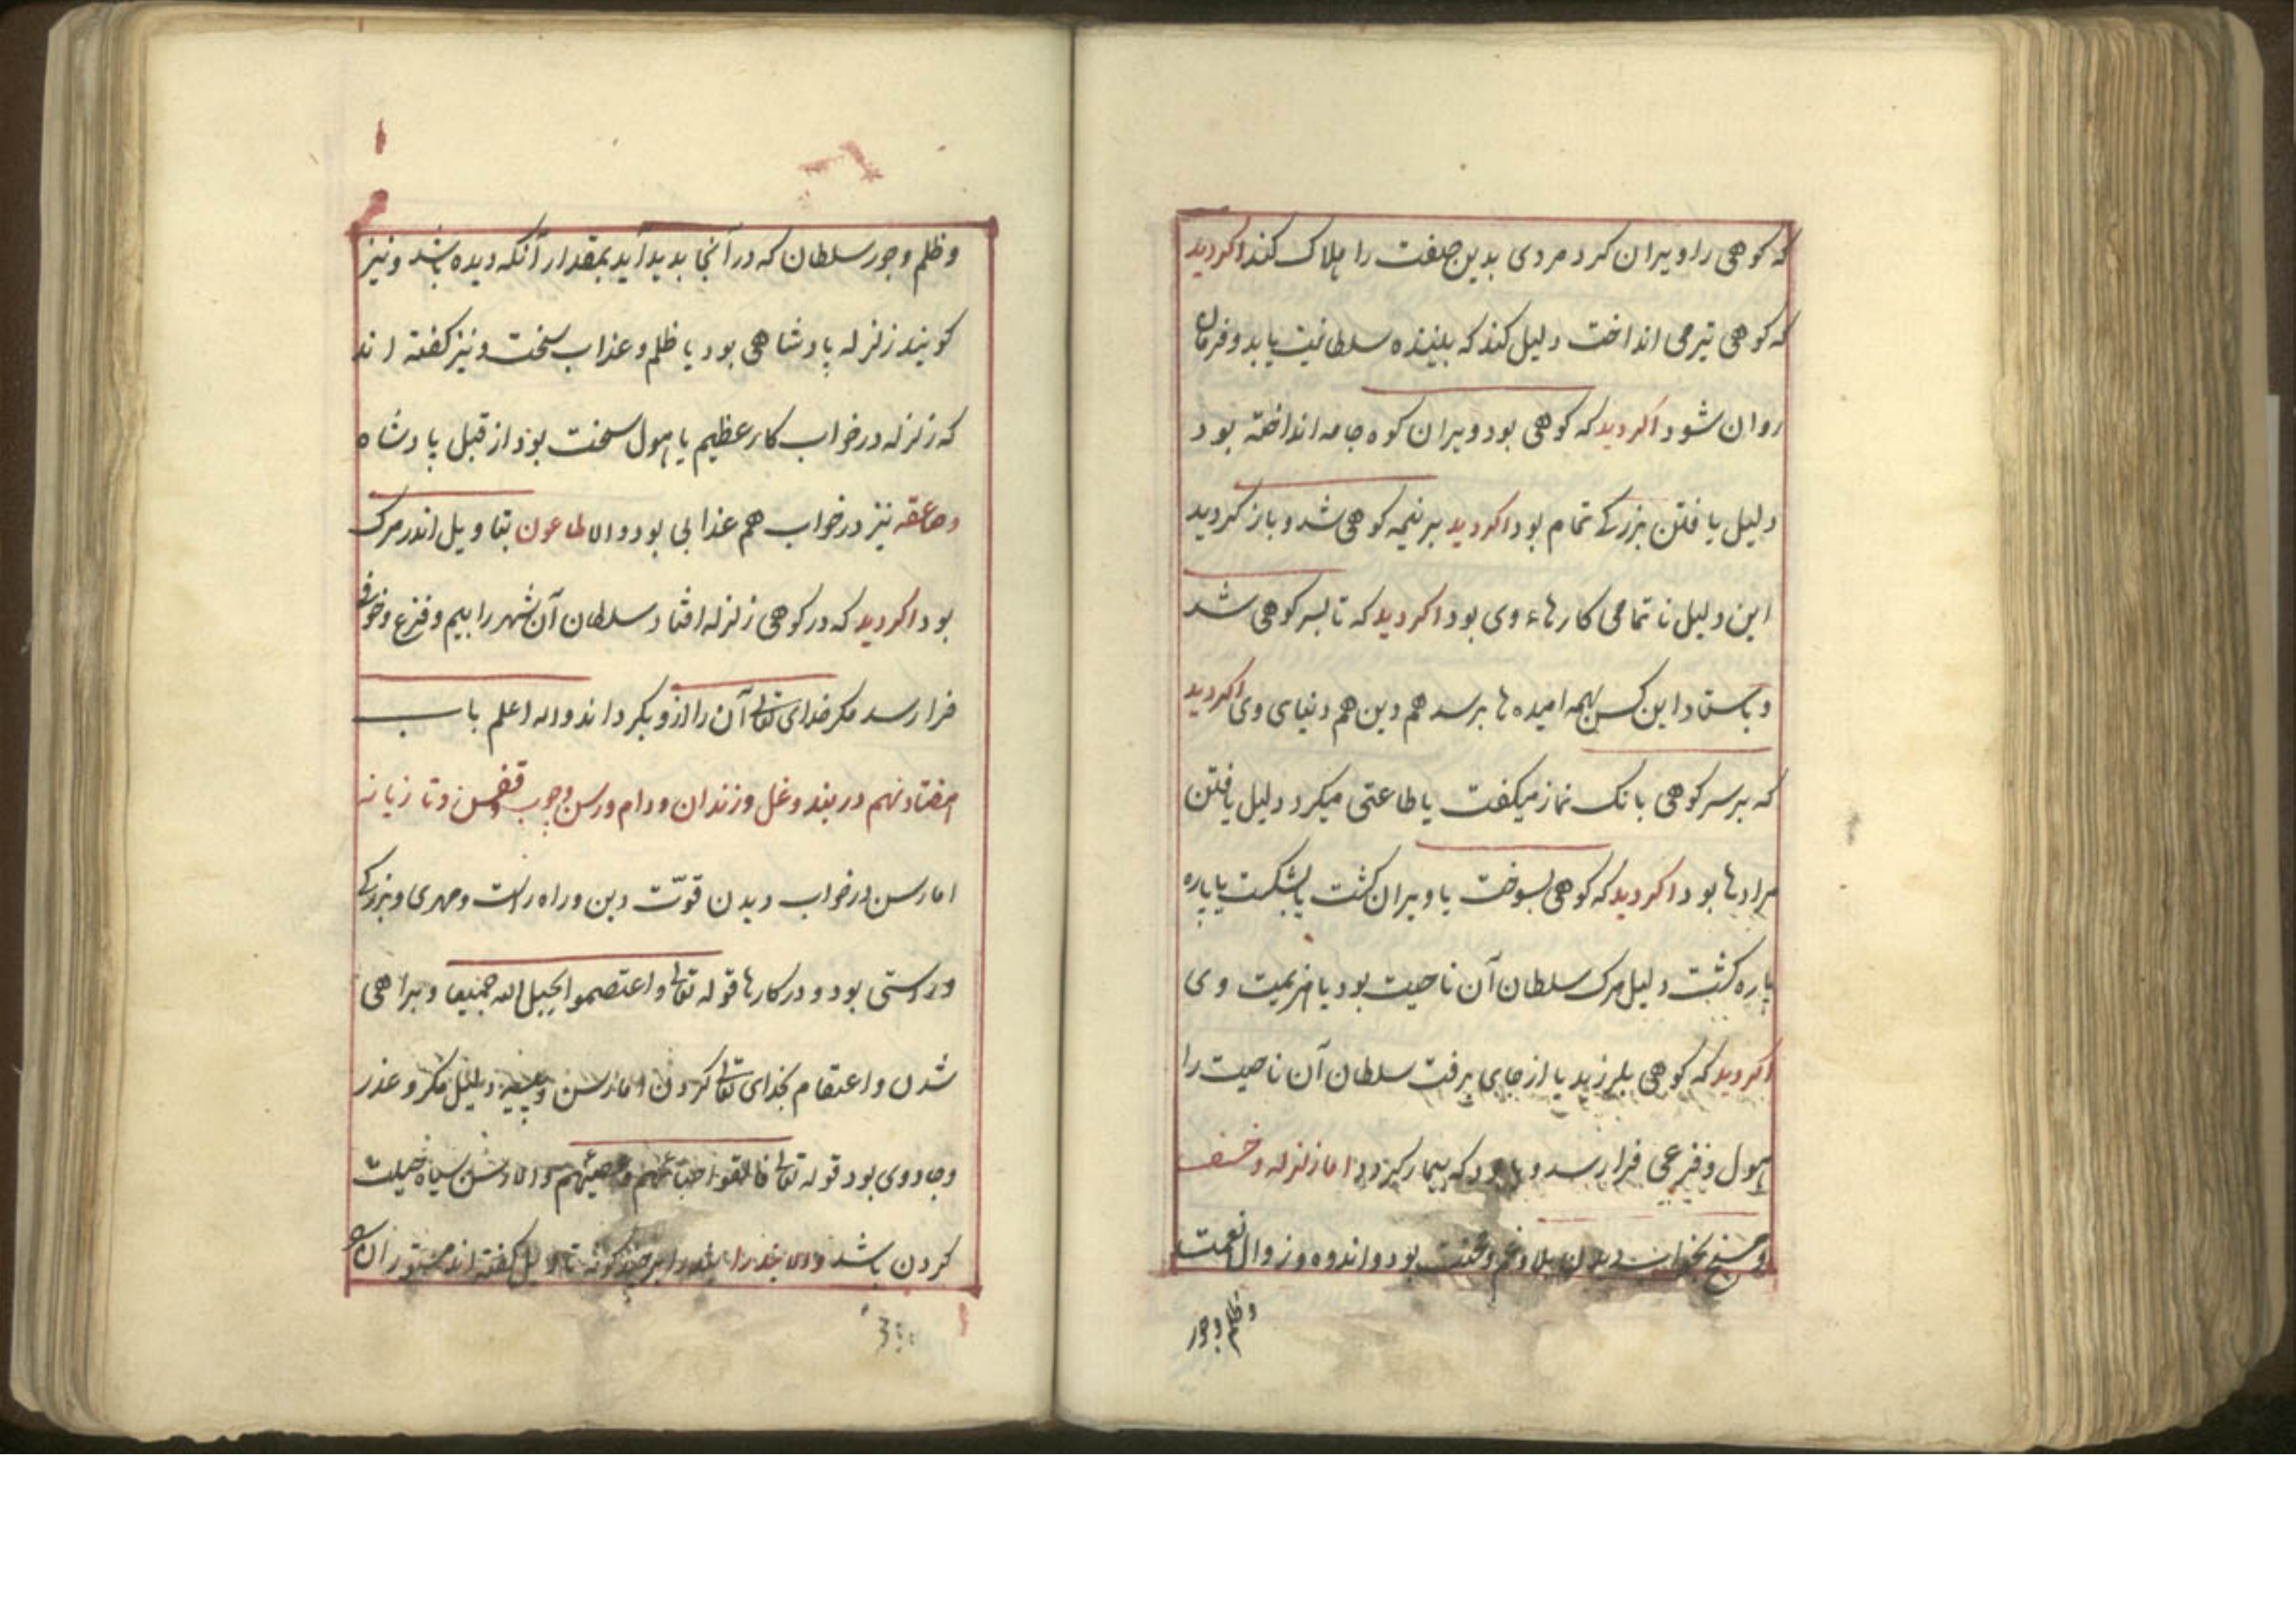 که کوهی را ویران کرد مردی بدین صفت را هلاک کند اکر دید
که کوهی تیر می انداخت دلیل کند که بیننده سلطانیت یابد و فرمان
روان شود اکر دید که کوهی بود ویران کوه جامه انداخته بود
دلیل یافتن بزرکے تمام بود اکر دید بر نیمه کوهی شد و باز کردید
این دلیل ناتمامی کارهاء وی بود اکر دید که تا بسر کوهی شد
و باستاد این کس بهمه امیدها برسد هم دین هم دنیای وی اکر دید
که بر سر کوهی بانک نماز میکفت یا طاعتی میکرد دلیل یافتن
مرادها بود اکر دید که کوهی بسوخت یا ویران کشت یا بشکست یا پاره
پاره کشت دلیل مرک سلطان آن ناحیت بود یا هزیمیت وی
اکر دید که کوهی بلرزید یا از جای برفت سلطان آن ناحیت را
هول و فزعی فرا رسد و با بود که بیمار کردد اما زلزله و خسف
و مسخ بخواب دیدن بلا و غم و محنت بود و اندوه و زوال نعمت
و ظلم و جور
و ظلم و جور سلطان که در آنجا بدید آید بمقدار آنکه دیده باشد و نیز
کویند زلزله پادشاهی بود یا ظلم و عذاب سخت و نیز کفته اند
که زلزله در خواب کار عظیم یا هول سخت بود از قبل پادشاه
و صاعقه نیز در خواب هم عذابی بود و اما طاعون بتاویل اندر مرک
بود اکر دید که در کوهی زلزله افتاد سلطان آن شهر را بیم و فزع و خوف
فرا رسد مکر خدای تعالی آن را ازو بکرداند والله اعلم باب
هفتاد نهم در بند و غل و زندان و دام و رسن و چوب و قفس و تازیانه
اما رسن در خواب دیدن قوّت دین و راه راست و مهری و بزرکے
و درستی بود و در کارها قوله تعالی واعتصموا بحبل الله جمیعا و براهی
شدن و اعتقام بخدای تعالی کردن اما رسن دلیل مکر و عذر
و جادوی بود قوله تعالی فالقوا حبالهم و عصیهم و اما رسن سیاه حیلت
کردن باشد و اما بند را بر چند کونه تاویل کفته اند مستوران